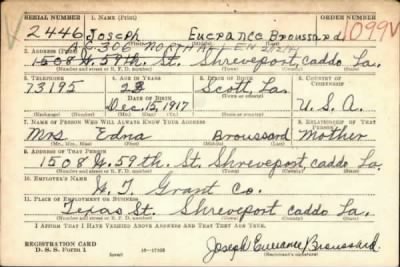 SERIAL NUMBER 1. NAME (Print) ORDER NUMBER
2446 Joseph Eucrance Broussard 1099V
(First) (Middle) (Last)
306 NORTH ALLEN
2. ADDRESS (Print)
1508 W. 59th. St. Shreveport, Caddo La.
(Number and street or R. F. D. number) (Town) (County) (State)
3. TELEPHONE 4. AGE IN YEARS 5. PLACE OF BIRTH 6. COUNTRY OF CITIZENSHIP
73195 22 Scott, La.
DATE OF BIRTH
Dec. 15, 1917 U. S. A.
(Mo.) (Day) (Yr.) (State or country)
7. NAME OF PERSON WHO WILL ALWAYS KNOW YOUR ADDRESS 8. RELATIONSHIP OF THAT PERSON
Mrs Edna Broussard Mother
(Mr., Mrs., Miss) (First) (Middle) (Last)
9. ADDRESS OF THAT PERSON
1508 W. 59th. St. Shreveport, Caddo La.
(Number and street or R. F. D. number) (Town) (County) (State)
10. EMPLOYER'S NAME
W. T. Grant Co.
11. PLACE OF EMPLOYMENT OR BUSINESS
Texas St. Shreveport Caddo La.
(Number and street or R. F. D. number) (Town) (County) (State)
I AFFIRM THAT I HAVE VERIFIED ABOVE ANSWERS AND THAT THEY ARE TRUE.
REGISTRATION CARD
D. S. S. Form 1 (over) Joseph Eucrance Broussard